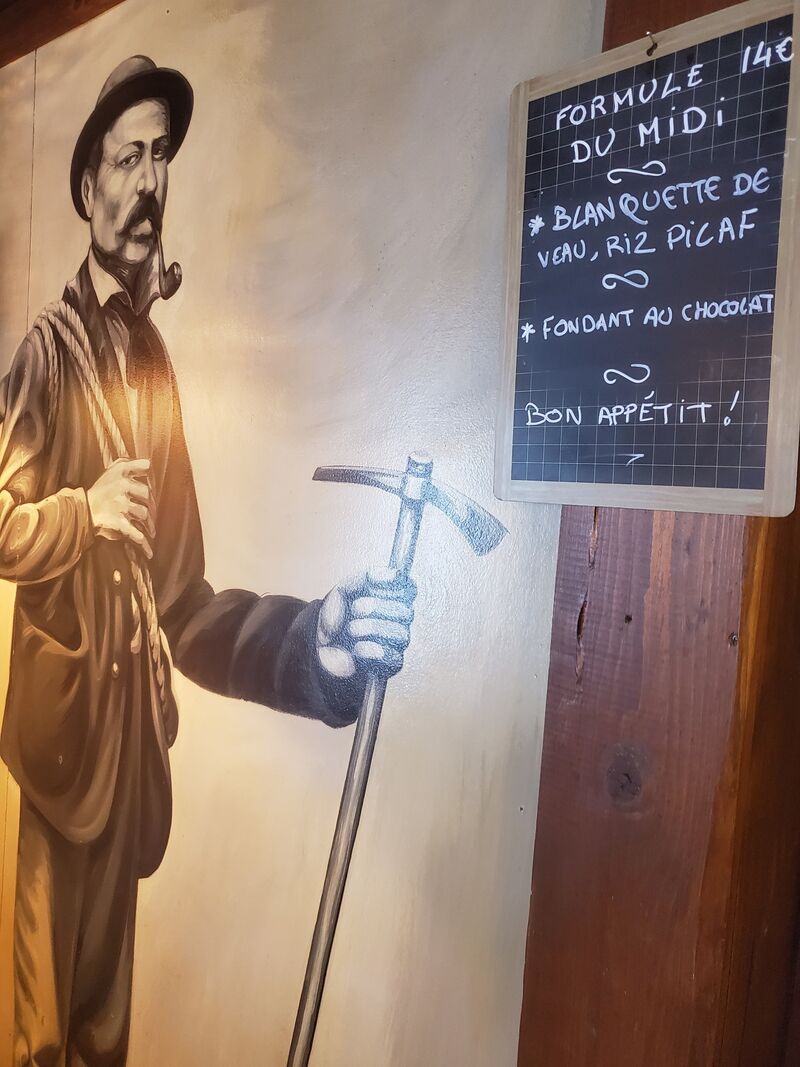 FORMULE 14€
DU MIDI
* BLANQUETTE DE
VEAU, RIZ PILAF
* FONDANT AU CHOCOLAT
BON APPÉTIT !